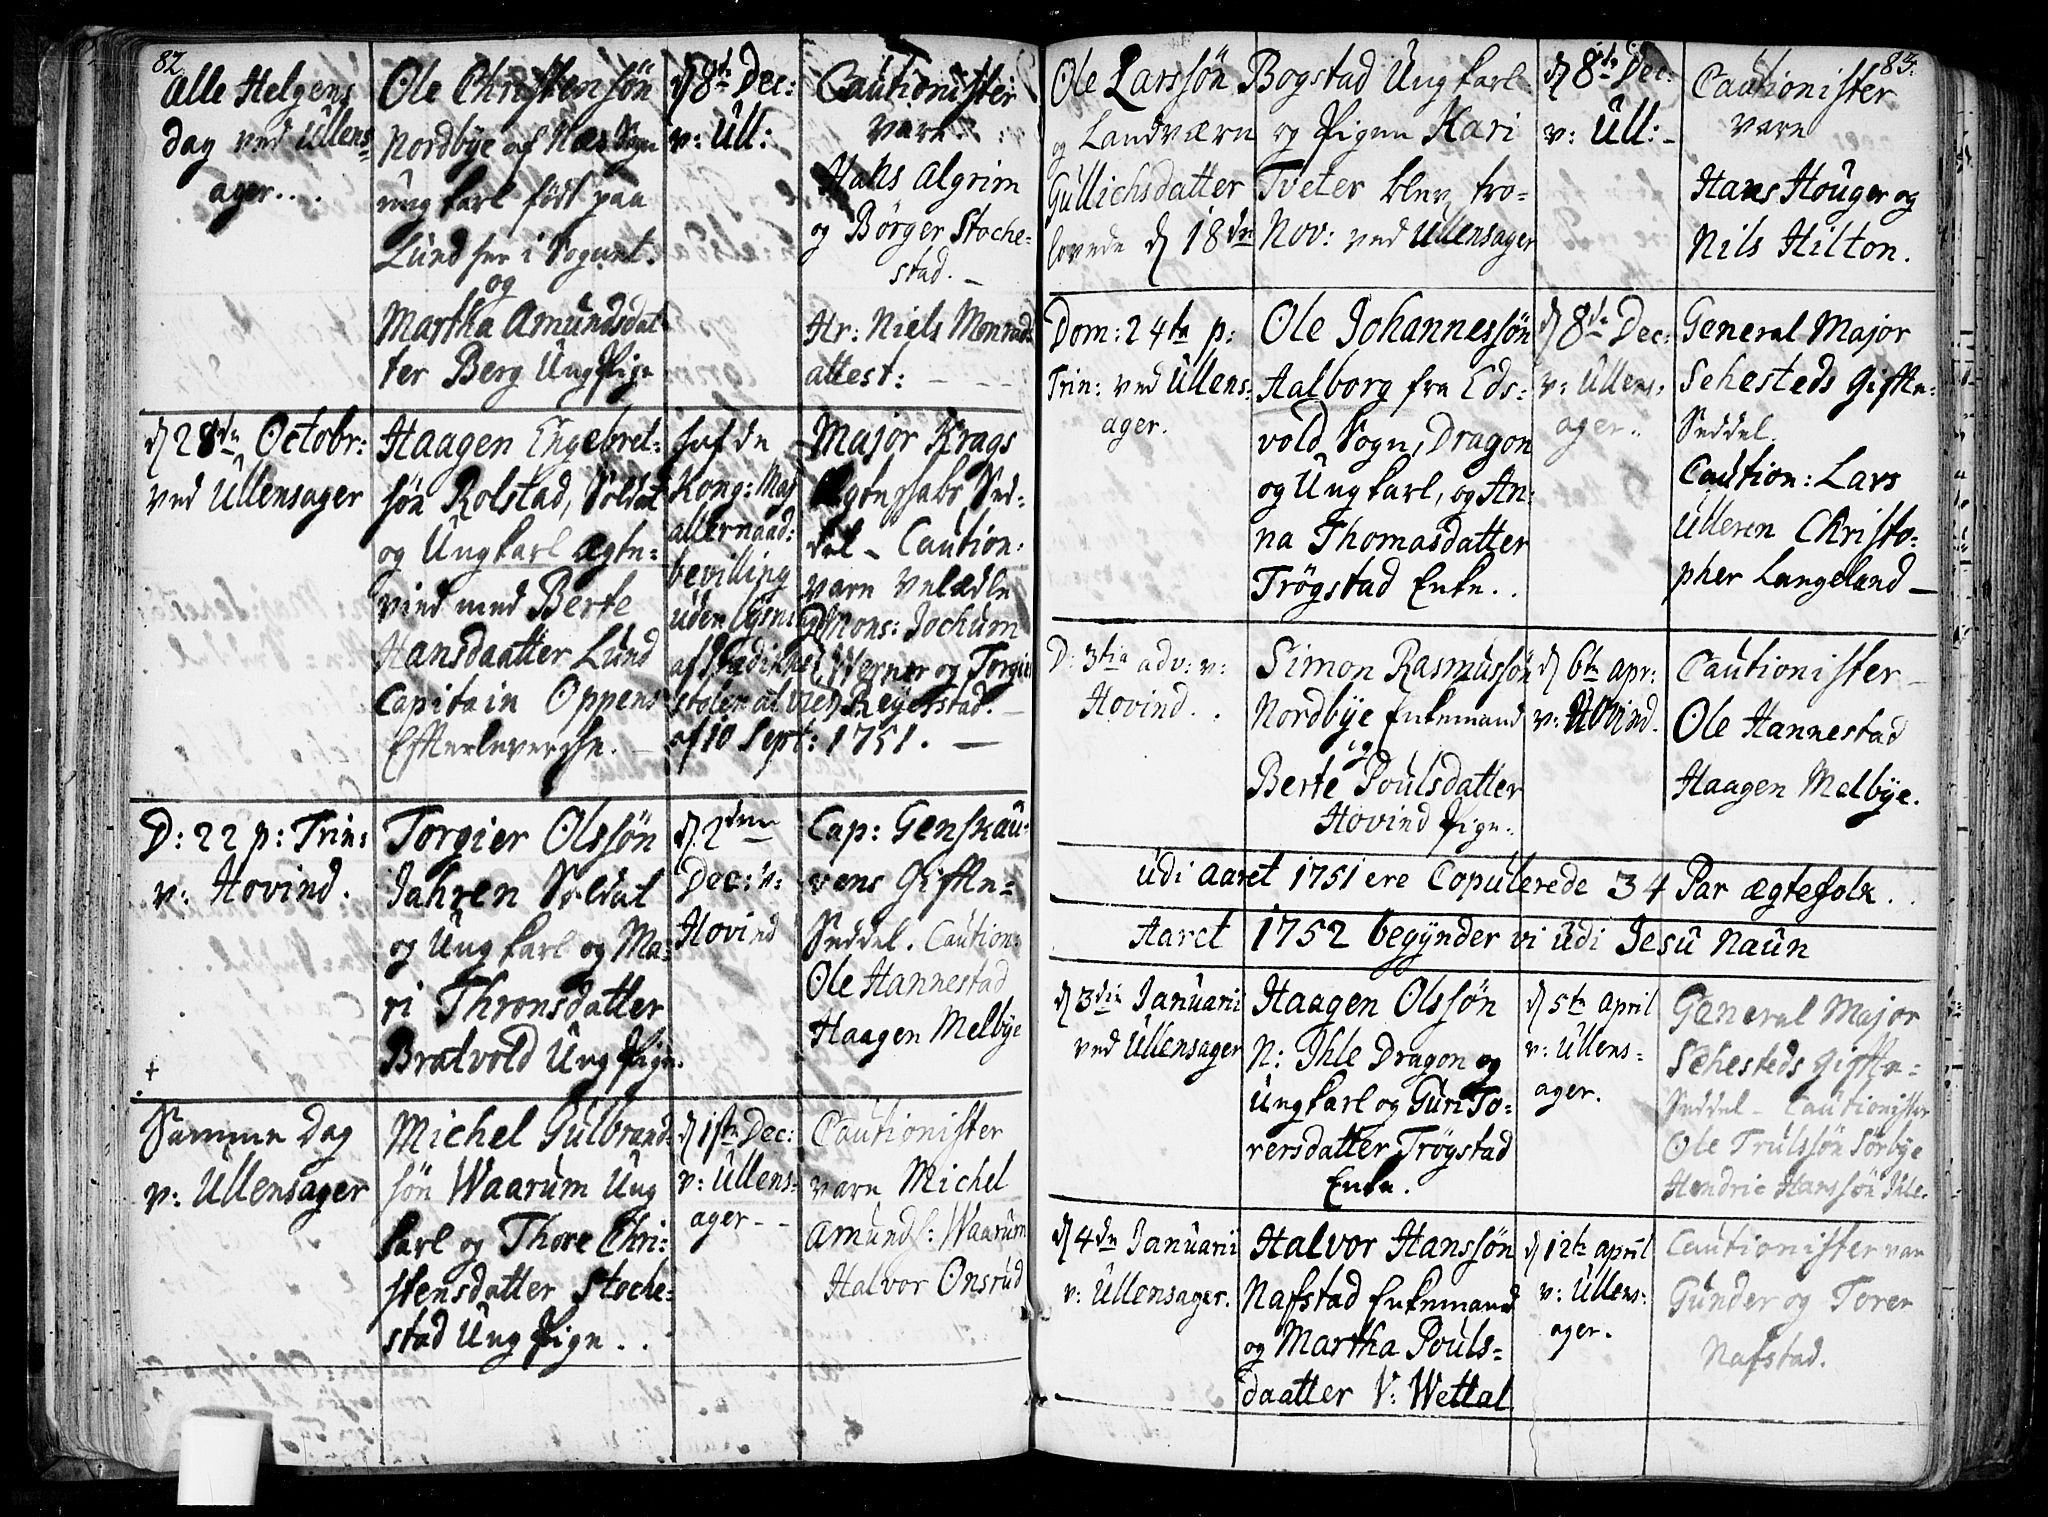 82.
Alle Helgens
Dag ved Ullens-
ager...
Ole Christensön
Nordbye af Næs Sogn
ung karl födt paa
Lund her i Sognet.
og
Martha Amundsdat
ter Berg Ung Pige
d 8de Dec:
v: Ull:
Cautionister
vare
Hans Algrim
og Börger Stoche-
stad. –
Hr: Niels Monrads
attest: – - - -
d 28de Octobr:
ved Ullensager
Haagen Engebret-
sön Rolstad, Soldat
og Ung karl ægte-
vied med Berte
Hansdaatter Lund
Capitain Oppens
Efterleverske. –
Kong: Maj
allernaad:
bevilling
uden lysning
af 10 Sept: 1751. –
Major Krags
Ægteskabs Sed-
del – Caution:
vare Velædle
Mons: Jochum
Werner og Torgier
Reyerstad. –
D: 22 p: Trin:
v: Hovind.
Torgier Olssön
Jahren Soldat
og Ung karl og Ma-
ri Thronsdatter
Bratvold Ung Pige.
d 2den
Dec: v:
Hovind
Cap: Genskau-
vens Gifte-
Seddel. Caution:
Ole Hannestad
Haagen Melbye
+
Samme Dag
v: Ullensager
Michel Gulbrand-
sön Waarum Ung
karl og Thore Chri-
stensdatter Stoche-
stad Ung Pige . .
d 1ste Dec:
v: Ullens-
ager – –
Cautionister
vare Michel
Amunds: Waarum
Halvor Onsrud
83.
Ole Larssön Bogstad Ung karl
og Landværn og Pigen Kari
Gullichsdatter Tveter blev tro-
lovede d 18de Nov: ved Ullensager
d 8de Dec:
v: Ull: –
Cautionister
vare
Hans Houger og
Nils Hilton.
Dom: 24ta p:
Trin: ved Ullens-
ager.
Ole Johannessön
Aalborg fra Eds-
vold Sogn, Dragon
og Ung karl, og An-
na Thomasdatter
Trögstad Enke. .
d 8de Dec:
v: Ullens-
ager..
General Major
Sehesteds Gifte-
Seddel.
Caution: Lars
Ulleren Christo-
pher Langeland –
D: 3tia adv: v:
Hovind. .
Simon Rasmussön
Nordbye Enkemand
og
Berte Poulsdatter
Hovind Pige..
d 6te apr:
v: Hovind.
Cautionister –
Ole Hannestad
Haagen Melbye.
Udi Aaret 1751 ere Copulerede 34 Par ægtefolk. .
Aaret 1752 begynder vi udi Jesu Naun
d 3die Januarii
ved Ullensager
Haagen Olssön
N: Ihle Dragon og
Ungkarl og Guri To-
rersdatter Trögstad
Enke.
d 5te april
v: Ullens-
ager.
General Major
Sehesteds Gifte-
Seddel – Cautionister
Ole Trulssön Sörbye
Hendric Hanssön Ihle.
d 4de Januarii
v: Ullensager.
Halvor Hanssön
Nafstad Enkemand
og Martha Pouls-
daatter V: Wettal
d 12te april
v: Ullens-
ager.
Cautionister var
Gunder og Torer
Nafstad.